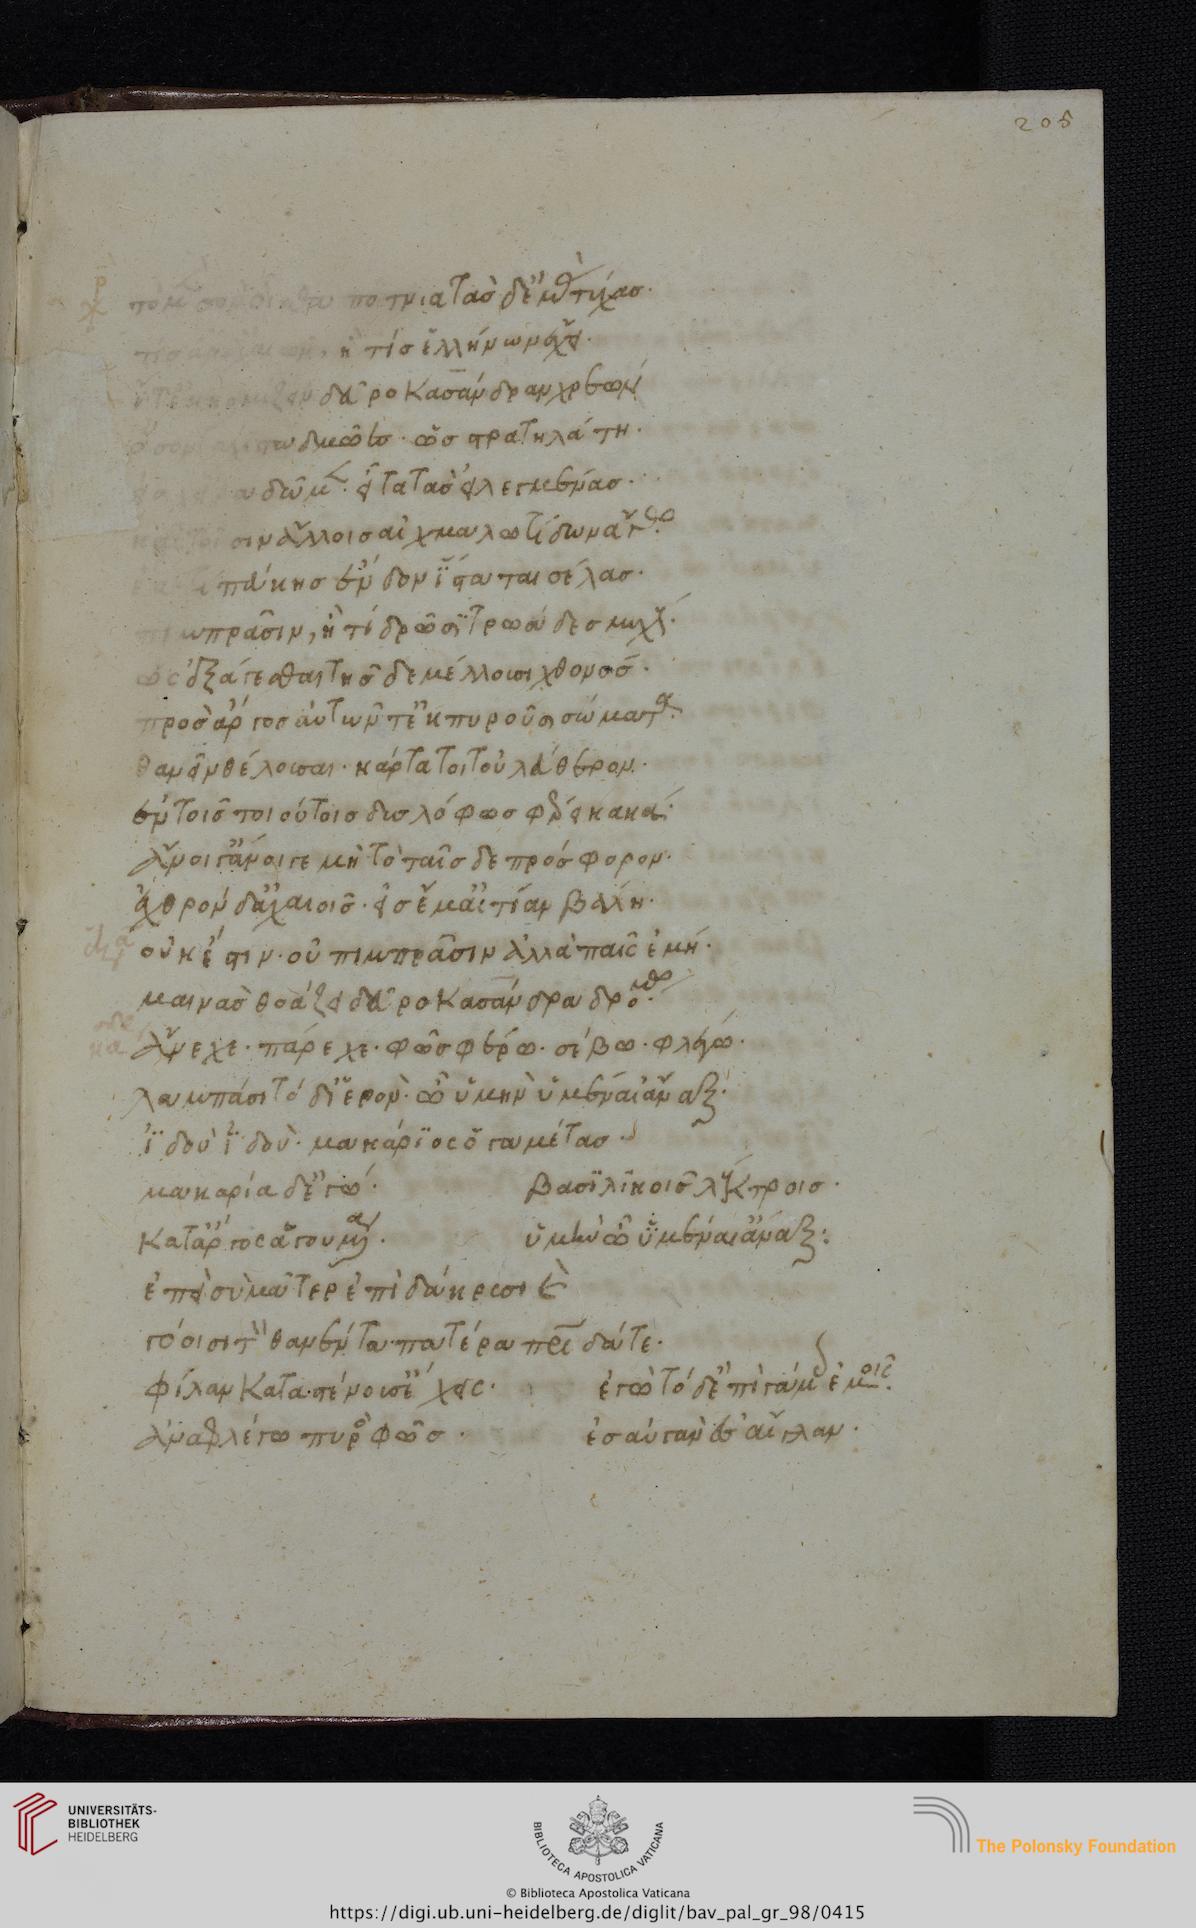 205
τὸ μὲν σὸν οἶσθα πότνια τὰς δ' ἐμὰς τύχας·
τίς ἢ τίς ἑλλήνων ἔχει·
ἴτ' ἐκκομίζειν δεῦρο Κασάνδραν χρεών
δμῶες· ὡς στρατηλάτῃ·
δῶμεν· εἶτα τὰς εἰλεγμένας·
καὶ τοῖσιν ἄλλοις αἰχμαλωτίδων ἄγω·
πεύκης ἔνδον ἵσταται σέλας·
πιμπρᾶσιν, ἢ τί δρῶσϊ τρωάδες μυχούς·
ὡς ἐξάγεσθαι τῆσδε μέλλουσι χθονός·
πρὸς ἄργος αὐτῶν τ' ἐκπυροῦσι σώματα·
θανεῖν θέλουσαι· κάρτα τοι τοὐλεύθερον·
ἐν τοῖς τοιούτοις δυσλόφως φέρει κακά·
ἄνοιγ' ἄνοιγε μὴ τὸ ταῖσδε πρόσφορον·
ἐχθρόν δ' ἀχαιοῖς· εἰς ἔμ' αἰτίαν βάλῃ·
οὐκ ἔστιν· οὐ πιμπρᾶσιν ἀλλὰ παῖς ἐμή·
μαινὰς θοάζει δεῦρο Κασάνδρα δρόμῳ·
ἄνεχε· πάρεχε· φῶς φέρω· σέβω· φλέγω·
λαμπάσι τό δ' ἱερόν· ὦ ὑμὴν ὑμέναι' ἄναξ·
ἰδοὺ ἰδοὺ· μακάριος ὁ γαμέτας·
μακαρία δ' ἐγώ· βασιλικοῖς λέκτροις·
Κατ' ἄργος ἁ γαμουμένα· ὑμὴν ὦ ὑμέναι' ἄναξ:
ἐπεὶ σὺ μᾶτερ ἐπὶ δάκρυσι καὶ
γόοισι τὸν θανόντα πατέρα πατρίδα τε·
φίλαν Καταστένουσ' ἔχεις· ἐγὼ τό δ' ἐπὶ γάμοις ἐμοῖς·
ἀναφλέγω πυρὸς φῶς· ἐς αὐγὰν ἐς αἴγλαν·
UNIVERSITÄTS-
BIBLIOTHEK
HEIDELBERG
BIBLIOTECA APOSTOLICA VATICANA
© Biblioteca Apostolica Vaticana
The Polonsky Foundation
https://digi.ub.uni-heidelberg.de/diglit/bav_pal_gr_98/0415